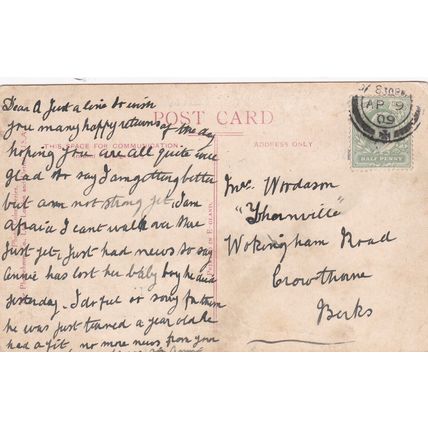 Dear A Just a line to wish
you many happy returns of the day
hoping you are all quite well
glad to say I am getting better
but am not strong yet, I am
afraid I cant walk over there
Just yet. Just had news to say
Annie has lost her baby boy he died
yesterday. I do feel so sorry for them
he was just turned a year old he
had a fit, no more news from your
POST CARD
THIS SPACE FOR COMMUNICATION
ADDRESS ONLY
AP 9
09
HALF PENNY
Mrs Woodason
"Thornville"
Wokingham Road
Crowthorne
Berks